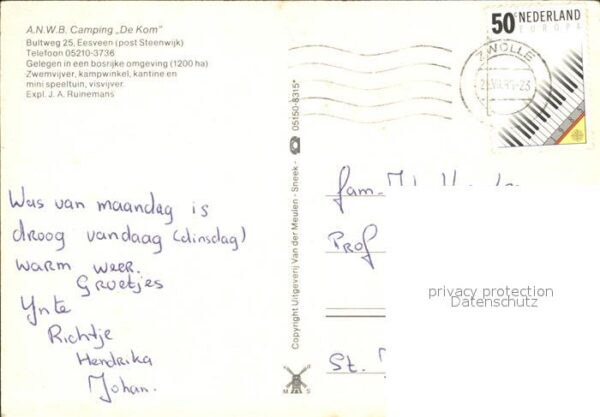 A.N.W.B. Camping „De Kom"
Bultweg 25, Eesveen (post Steenwijk)
Telefoon 05210-3736
Gelegen in een bosrijke omgeving (1200 ha)
Zwemvijver, kampwinkel, kantine en
mini speeltuin, visvijver.
Expl. J. A. Ruinemans
Was van maandag is
droog vandaag (dinsdag)
warm weer.
Groetjes
Ynte
Richtje
Hendrika
Johan.
Copyright Uitgeverij Van der Meulen - Sneek - 05150-8315*
M S
50c NEDERLAND
EUROPA
ZWOLLE
fam.
Prof
St.
privacy protection
Datenschutz